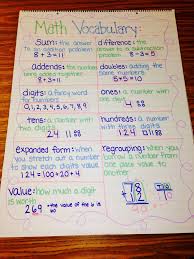 Math Vocabulary:
sum: the answer
to an addition problem
8+3=11
difference: the
answer to a subtraction
problem
8-3=5
addends: the numbers
being added together
8+3=11
doubles: adding the
same numbers
5+5=10
digits: a fancy word
for numbers
0,1,2,3,4,5,6,7,8,9
ones: a number
with one digit
4
tens: a number
with two digits
24 11 88
hundreds: a number
with three digits
expanded form: when
you stretch out a number
to show each digits value
124=100+20+4
regrouping: when you
borrow a number from
one place value to
another
value: how much a digit
is worth
269 → the value of the 6 is
60